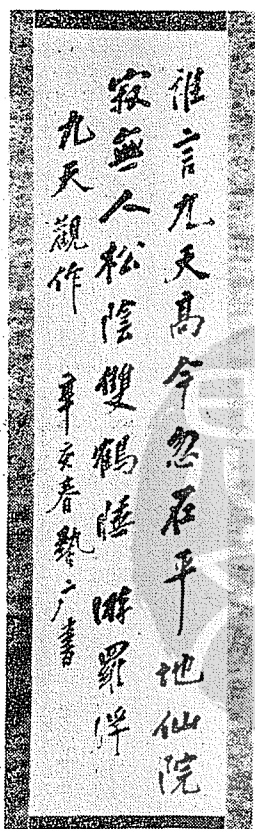 誰言九天高今忽在平地仙院
寂無人松陰雙鶴睡游羅浮
九天觀作 辛亥春广書